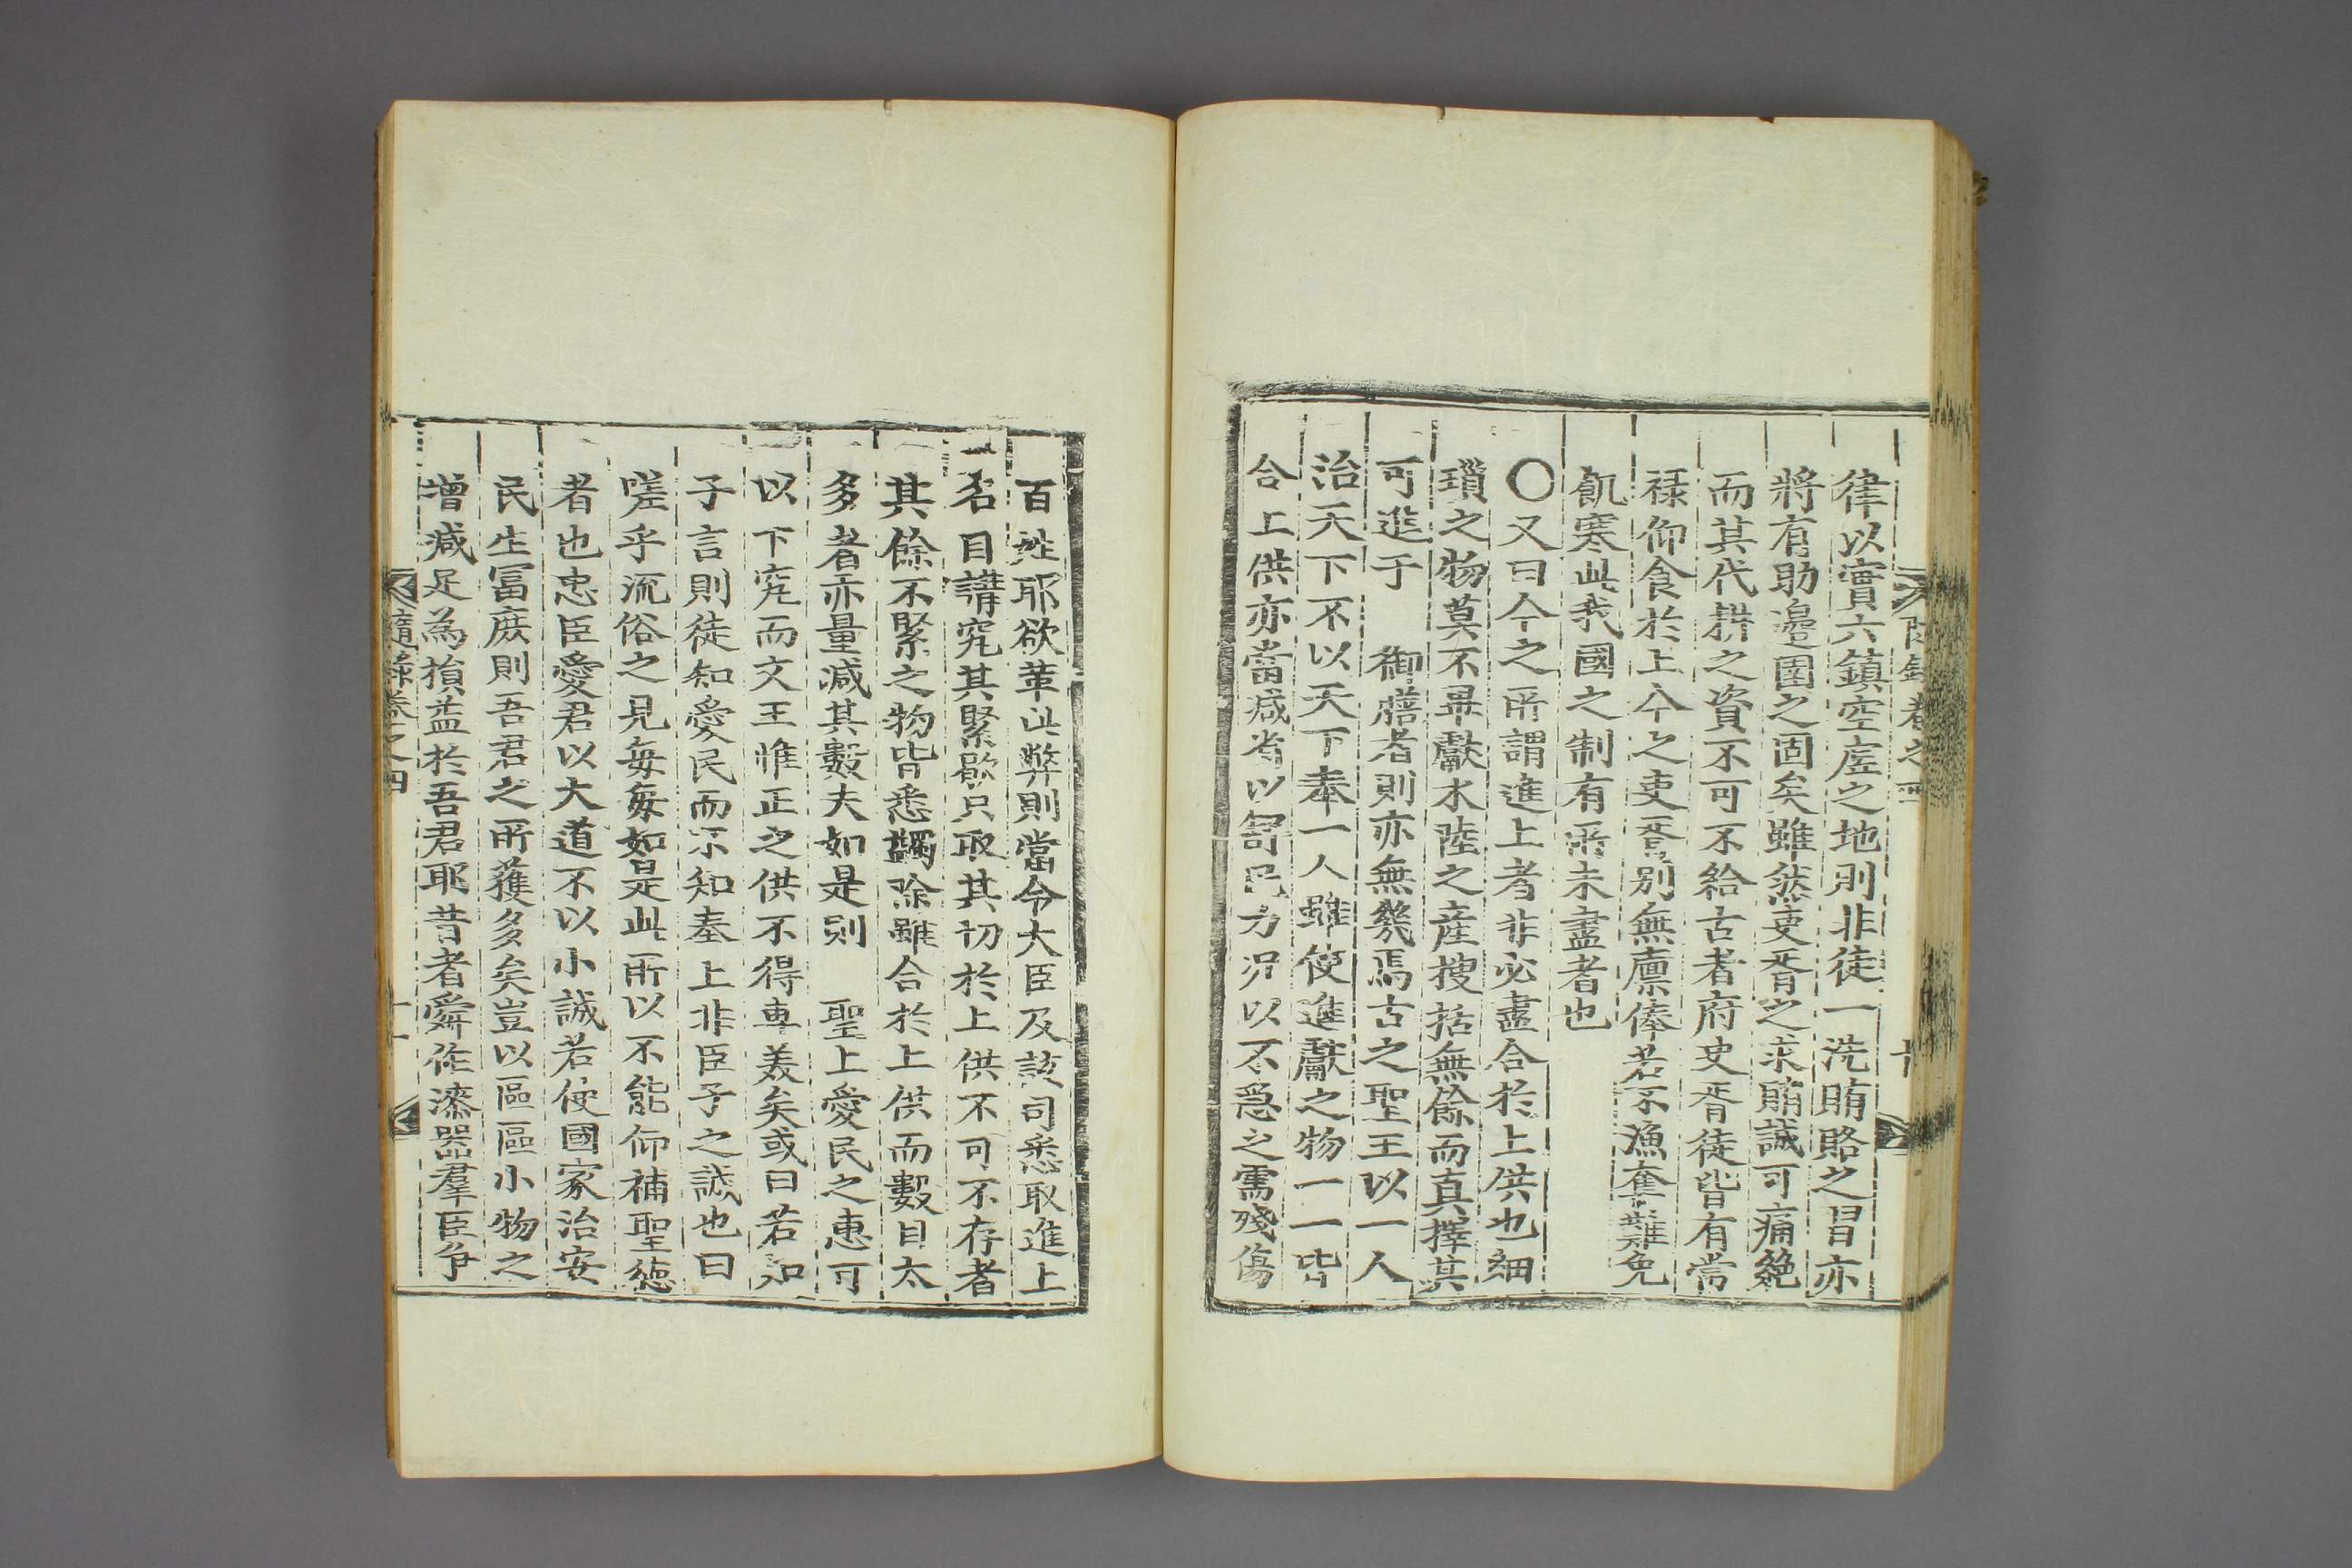 律以實六鎮空虛之地則非徒一洗賄賂之冒亦
將有助邊圉之固矣雖然吏胥之求賄誠可痛絶
而其代耕之資不可不給古者府史胥徒皆有常
祿仰食於上今之吏胥別無廩俸若不漁奪難免
飢寒此我國之制有所未盡者也
○又曰今之所謂進上者非必盡合於上供也細
瑣之物莫不畢獻水陸之產搜括無餘而真擇其
可進于 御膳者則亦無幾焉古之聖王以一人
治天下不以天下奉一人雖使進獻之物一一皆
合上供亦當減省以寬民力況以不急之需殘傷
百姓耶欲革此弊則當令大臣及該司悉取進上
名目講究其緊歇只取其切於上供不可不存者
其餘不緊之物皆悉蠲除雖合於上供而數目太
多者亦量減其數夫如是則 聖上愛民之惠可
以下究而文王惟正之供不得專美矣或曰若如
子言則徒知愛民而不知奉上非臣子之誠也曰
嗟乎流俗之見每每如是此所以不能仰補聖德
者也忠臣愛君以大道不以小誠若使國家治安
民生富庶則吾君之所獲多矣豈以區區小物之
增減足為損益於吾君耶昔者舜作漆器羣臣爭
隨錄卷之四 十一